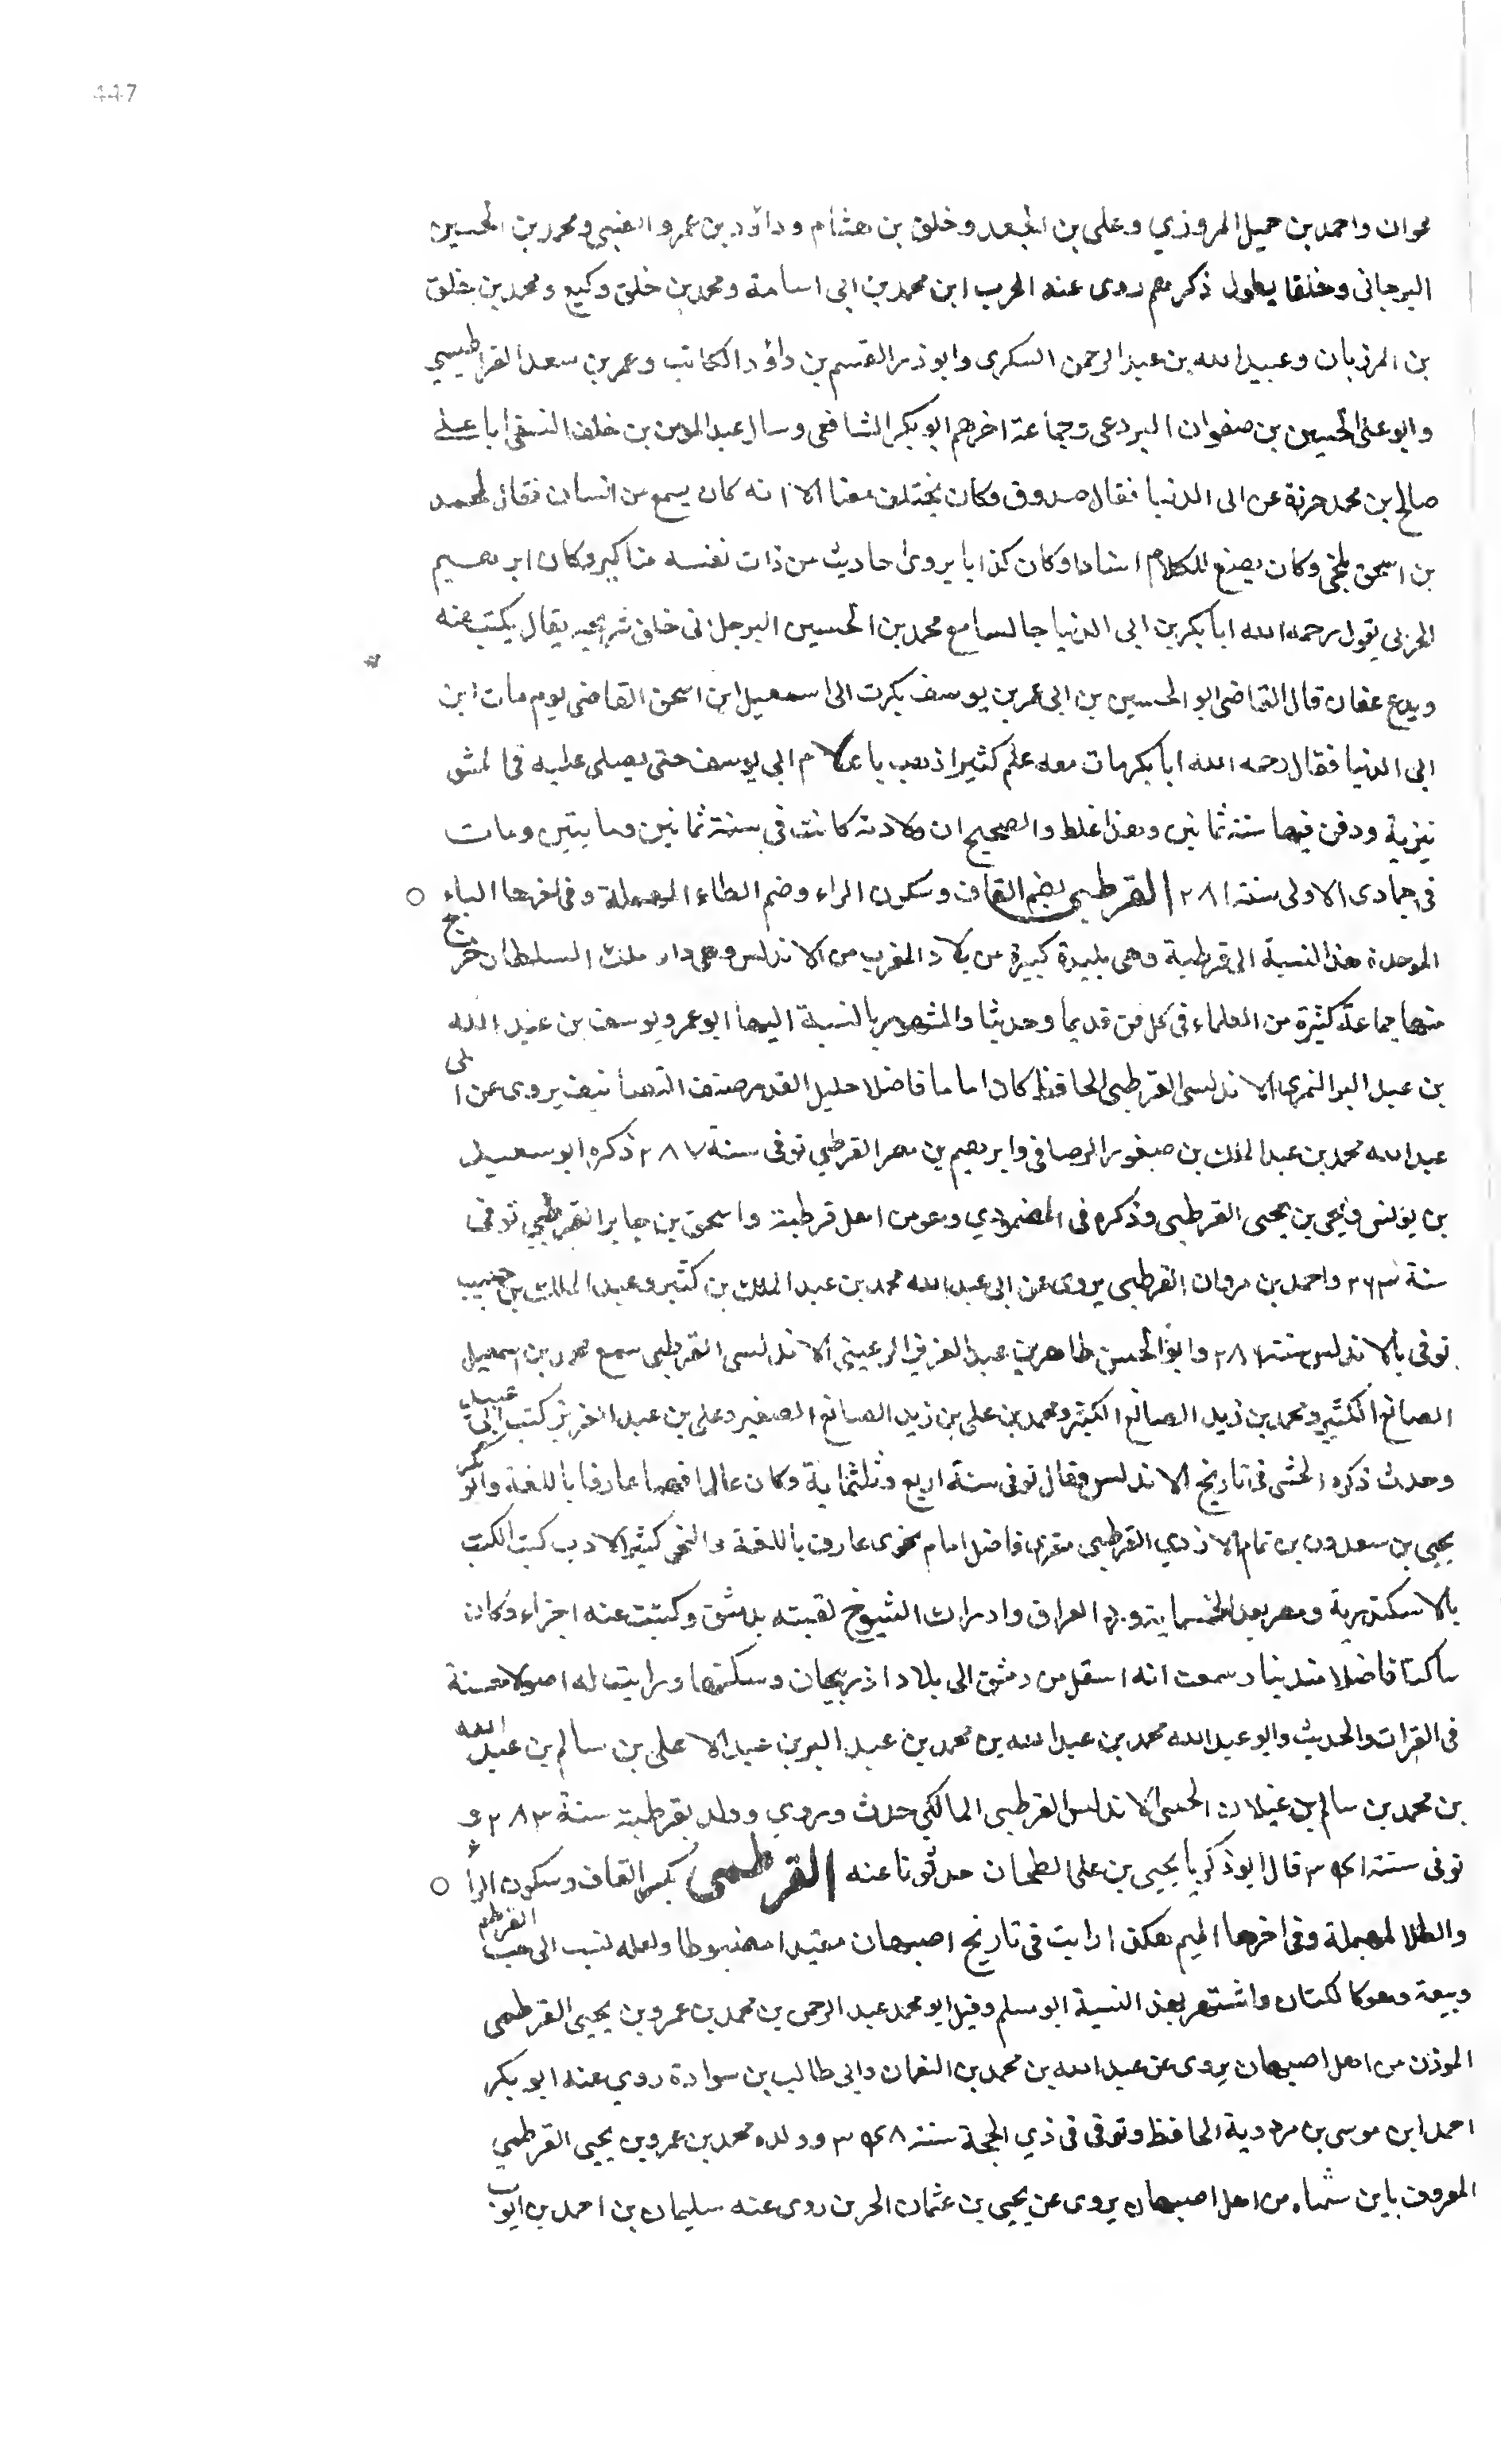 447
عوان واحمد بن جميل المروزي وعلى بن الجعد وخلق بن هشام وداؤد بن عمرو الضبي ومحمد بن الحسين
البرجانى وخلقا يطول ذكرهم روى عنه الحرب ابن محمد بن ابى اسامة ومحمد بن خلق وكيع ومحمد بن خلق
بن المرزبان وعبيد الله بن عبد الرحمن السكرى وابو ذر القسم بن داؤد الكاتب وعمر بن سعد القراطيسي
وابو على الحسين بن صفوان البردعى وجماعة اخرهم ابو بكر الشافعى وسال عبد المومن بن خلف النسفى ابا على
صالح بن محمد جزرة عن ابى الدنيا فقال صدوق وكان يختلف معنا الا انه كان يسمع من انسان فقال لمحمد
بن اسحق بلخى وكان يضع للكلام اسنادا وكان كذابا يروى احاديث من ذات نفسه مناكير وكان ابرهيم
الحربى يقول رحمه الله ابا بكر بن ابى الدنيا جالسا مع محمد بن الحسين البرجلانى يقال يكتب عنه
ويدع عفان قال القاضى ابو الحسين بن ابى عمر بن يوسف بكرت الى اسمعيل ابن اسحق القاضى يوم مات ابن
ابى الدنيا فقال رحمه الله ابا بكر مات معه علم كثير اذهب يا علام ابى يوسف حتى يصلى عليه فى الشو
نيزية ودفن فيها سنة ثمانين وهذا غلط والصحيح ان ولادته كانت فى سنة ثمانين ومايتين ومات
فى جمادى الاولى سنة ٢٨١ القرطبي بضم القاف وسكون الراء وضم الطاء المهملة وفى اخرها الباء
الموحدة هذه النسبة الى قرطبة وهى بلدة كبيرة من بلاد المغرب من الاندلس وهى دار ملك السلطان خرج
منها جماعة كثيرة من العلماء فى كل فن قديما وحديثا والمشهور بالنسبة اليها ابو عمرو يوسف بن عبد الله
بن عبد البر النمرى الاندلسى القرطبى الحافظ كان اماما فاضلا جليل القدر صنف التصانيف يروى عن ابى
عبد الله محمد بن عبد الملك بن صيفور الرصافى وابرهيم بن نصر القرطبي توفى سنة ٢٨٧ ذكره ابو سعيد
بن يونس ويحى بن يحيى القرطبى وذكره فى المصمودي وهو من اهل قرطبة واسحق بن جابر القرطبي توفى
سنة ٢٦٣ واحمد بن مروان القرطبى يروى عن ابى عبد الله محمد بن عبد الملك بن كثير وعبد الملك بن حبيب
توفى بالاندلس سنة ٢٨٦ وابو الحسن طاهر بن عبد العزيز الرعينى الاندلسى القرطبى سمع محمد بن اسمعيل
الصائغ الكثير ومحمد بن زيد الصائغ الكبير ومحمد بن على بن زيد الصائغ الصغير وعلى بن عبد العزيز كتب ابى عبيد
وحدث ذكره الخشى فى تاريخ الاندلس وقال توفى سنة اربع وثلثماية وكان عالما فهما عارفا باللغة وابو بكر
يحيى بن سعدون بن تمام الازدي القرطبى مقرى فاضل امام نحوى عارف باللغة والنحو كثير الادب كتب الكتب
بالاسكندرية ومصر بعد الخمسماية وورد العراق وادرك الشيوخ لقيته بدمشق وكتبت عنه اجزاء وكان
ساكتا فاضلا متدينا وسمعت انه اسقل من دمشق الى بلاد اذربيجان وسكنها ورايت له اصولا حسنة
فى القرات والحديث وابو عبد الله محمد بن عبد الله بن محمد بن عبد البر بن عبد الاعلى بن سالم بن عبد الله
بن محمد بن سالم بن غيلان الحسى الاندلس القرطبى المالكي حدث وروي وولد بقرطبة سنة ٢٨٣ و
توفى سنة قال ابو ذكريا يحيى بن على الطحان حدثونا عنه القرطمى بكسر القاف وسكون الراء
والطا المهملة وفى اخرها الميم هكذا رايت فى تاريخ اصبهان مقيدا مضبوطا ولعله نسب الى حب القرطم
وبيعه وهو كالكتان واشتهر بهذه النسبة ابو مسلم وقيل ابو محمد عبد الرحمن بن محمد بن عمرو بن يحيى القرطمى
الموذن من اهل اصبهان يروى عن عبد الله بن محمد بن النعمان وابى طالب بن سوادة روي عنه ابو بكر
احمد ابن موسى بن مردوية الحافظ وتوفى فى ذي الحجة سنة وولده محمد بن عمرو بن يحيى القرطمي
المعروف بابن شماه من اهل اصبهان يروى عن يحيى بن عثمان الحربن روى عنه سليمان بن احمد بن ايوب